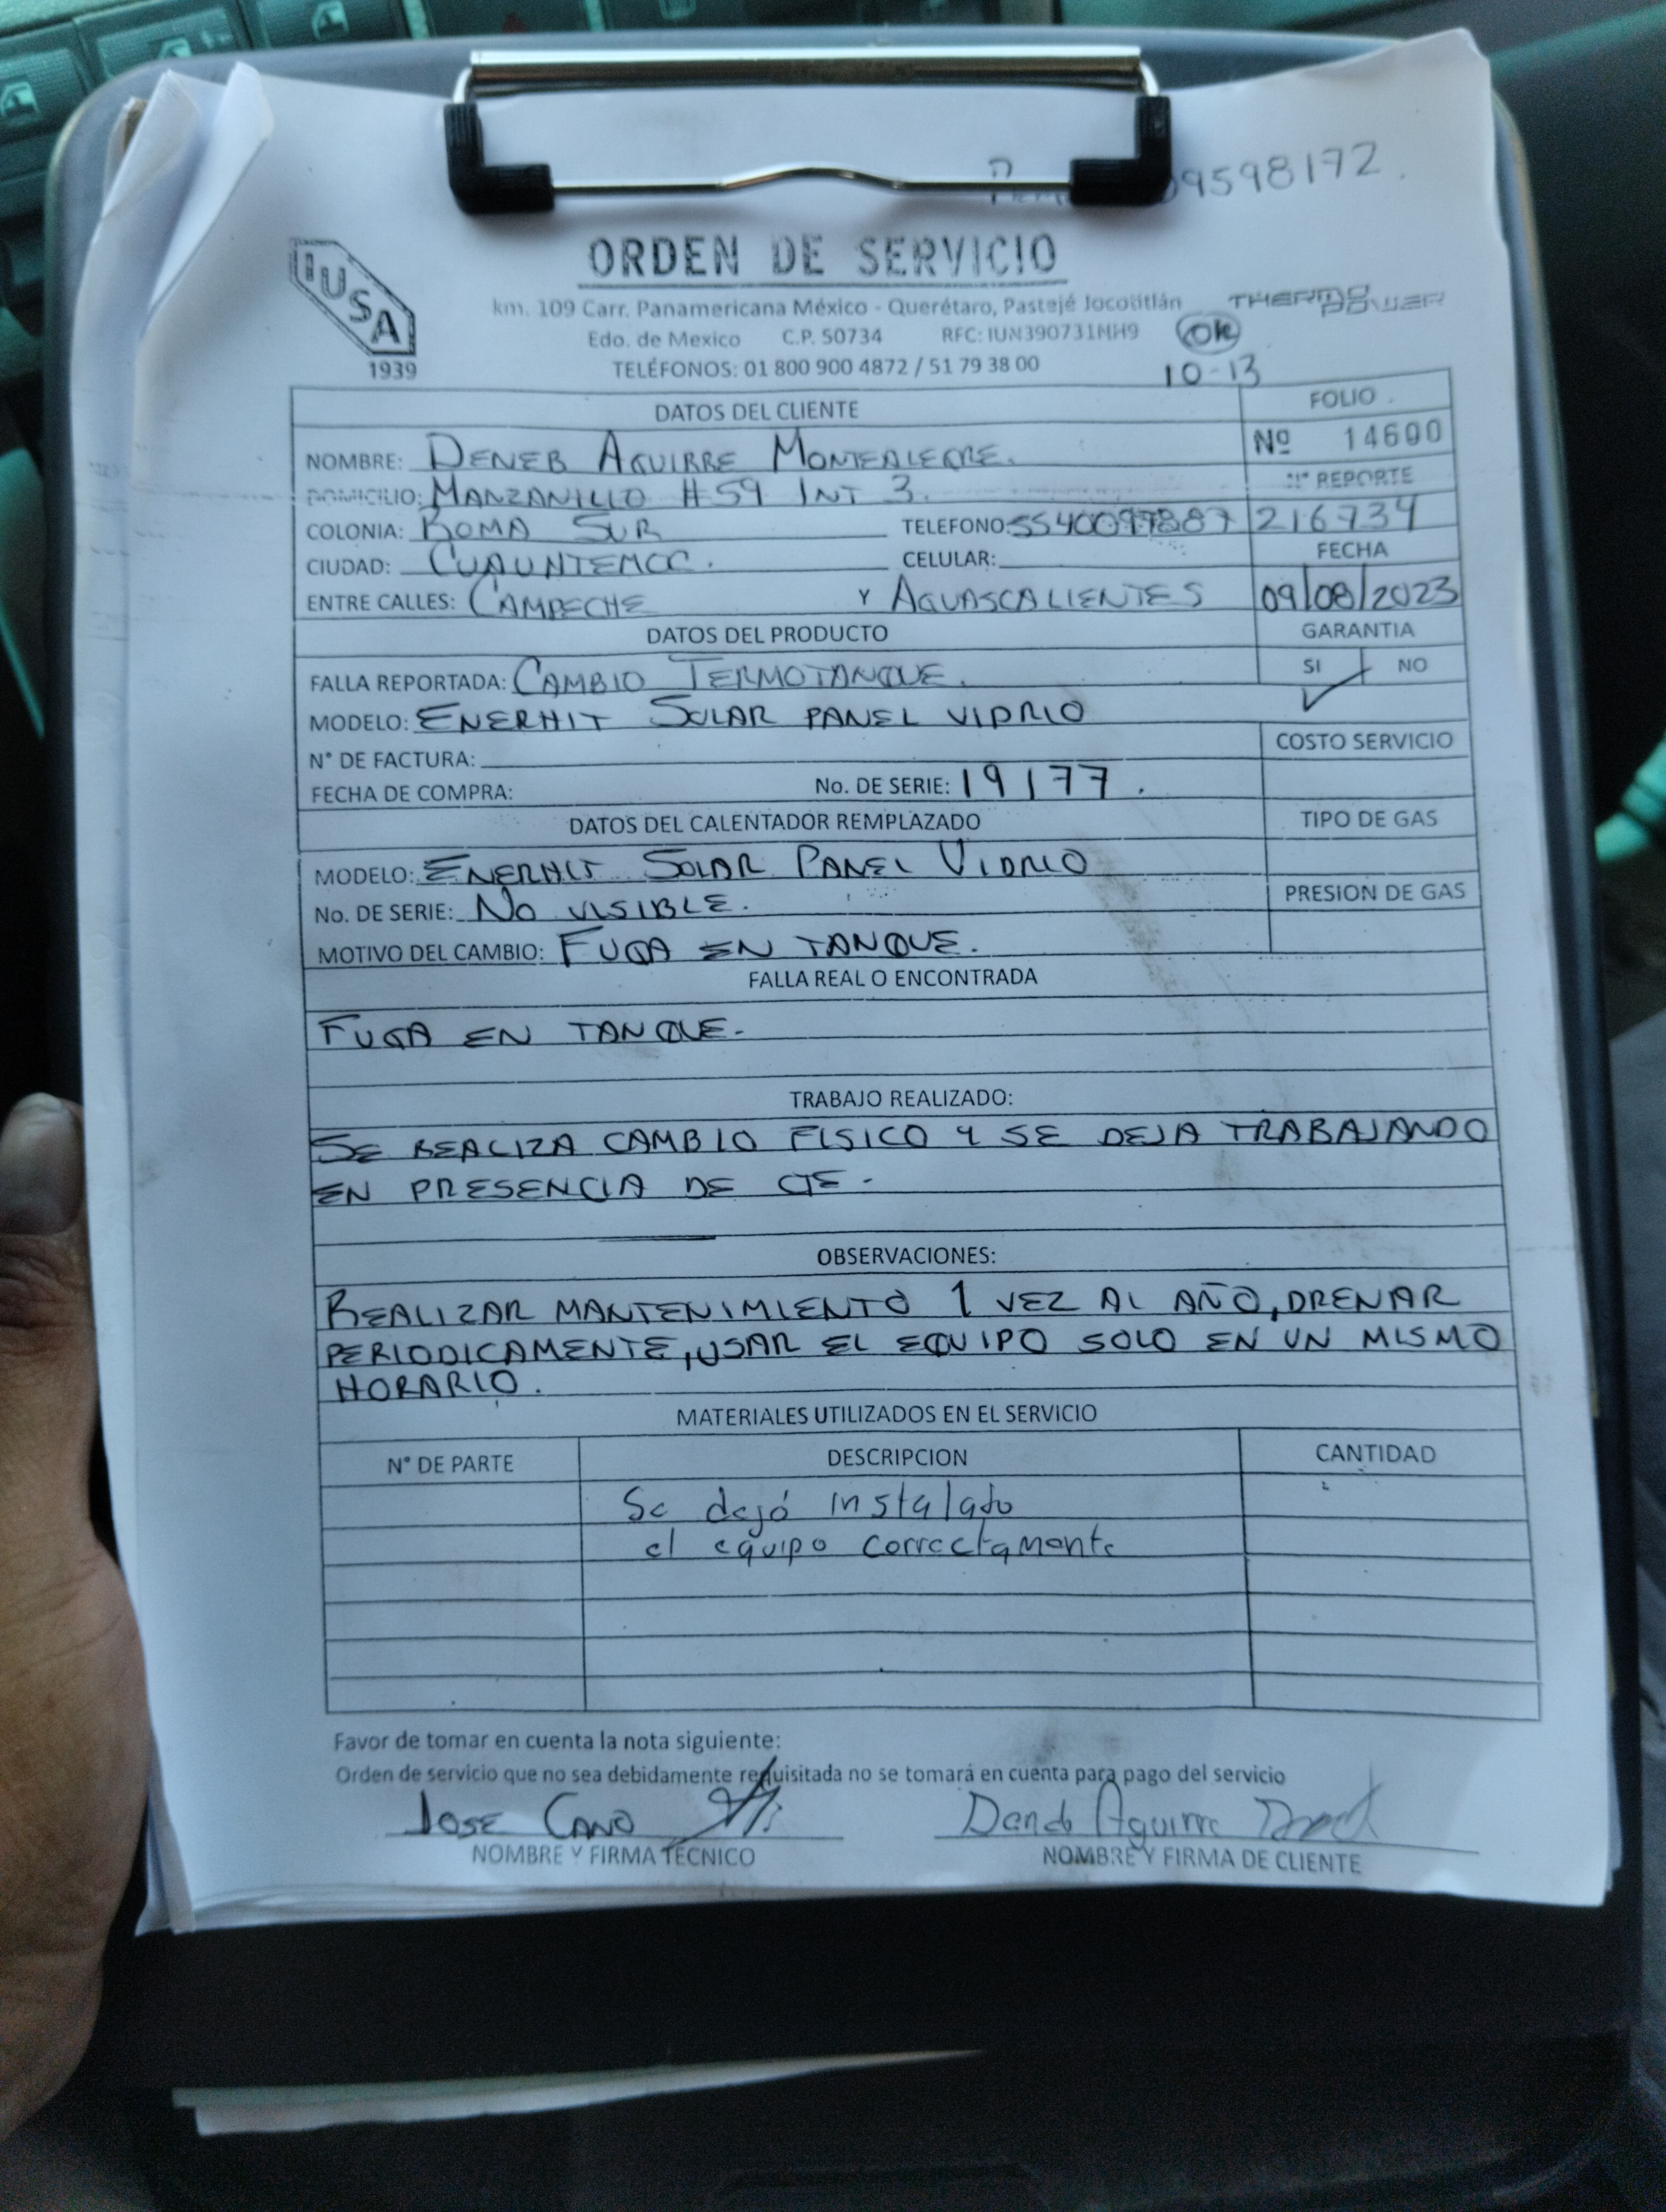 09598172.
IUSA
1939
ORDEN DE SERVICIO
km. 109 Carr. Panamericana México - Querétaro, Pastejé Jocotitlán
THERMO POWER
Edo. de Mexico C.P. 50734 RFC: IUN390731NH9
OK
TELÉFONOS: 01 800 900 4872 / 51 79 38 00
10-13
DATOS DEL CLIENTE
FOLIO
NOMBRE: DENEB AGUIRRE MONTEALEGRE.
Nº 14600
DOMICILIO: MANZANILLO #59 INT 3.
N° REPORTE
COLONIA: ROMA SUR TELEFONO: 5540097887 216734
CIUDAD: CUAUNTEMOC. CELULAR:
FECHA
ENTRE CALLES: CAMPECHE Y AGUASCALIENTES 09/08/2023
DATOS DEL PRODUCTO
GARANTIA
FALLA REPORTADA: CAMBIO TERMOTANQUE.
SI NO
MODELO: ENERHIT SOLAR PANEL VIDRIO
N° DE FACTURA:
COSTO SERVICIO
FECHA DE COMPRA: No. DE SERIE: 19177.
DATOS DEL CALENTADOR REMPLAZADO
TIPO DE GAS
MODELO: ENERHIT SOLAR PANEL VIDRIO
No. DE SERIE: NO VISIBLE.
PRESION DE GAS
MOTIVO DEL CAMBIO: FUGA EN TANQUE.
FALLA REAL O ENCONTRADA
FUGA EN TANQUE.
TRABAJO REALIZADO:
SE REALIZA CAMBIO FISICO Y SE DEJA TRABAJANDO
EN PRESENCIA DE CTE.
OBSERVACIONES:
REALIZAR MANTENIMIENTO 1 VEZ AL AÑO, DRENAR
PERIODICAMENTE, USAR EL EQUIPO SOLO EN UN MISMO
HORARIO.
MATERIALES UTILIZADOS EN EL SERVICIO
N° DE PARTE DESCRIPCION CANTIDAD
Se dejó instalado
el equipo correctamente
Favor de tomar en cuenta la nota siguiente:
Orden de servicio que no sea debidamente requisitada no se tomará en cuenta para pago del servicio
JOSE CANO Aguirre
NOMBRE Y FIRMA TECNICO NOMBRE Y FIRMA DE CLIENTE